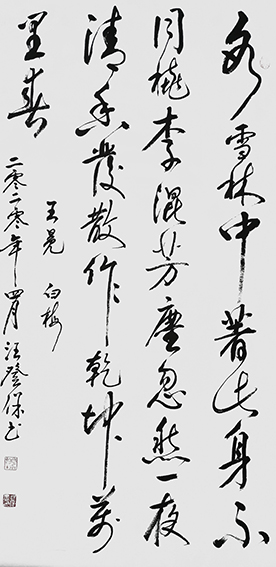 冰雪林中著此身不
同桃李混芳塵忽然一夜
清香發散作乾坤萬
里春
王冕 白梅
二零一零年四月汪登保书